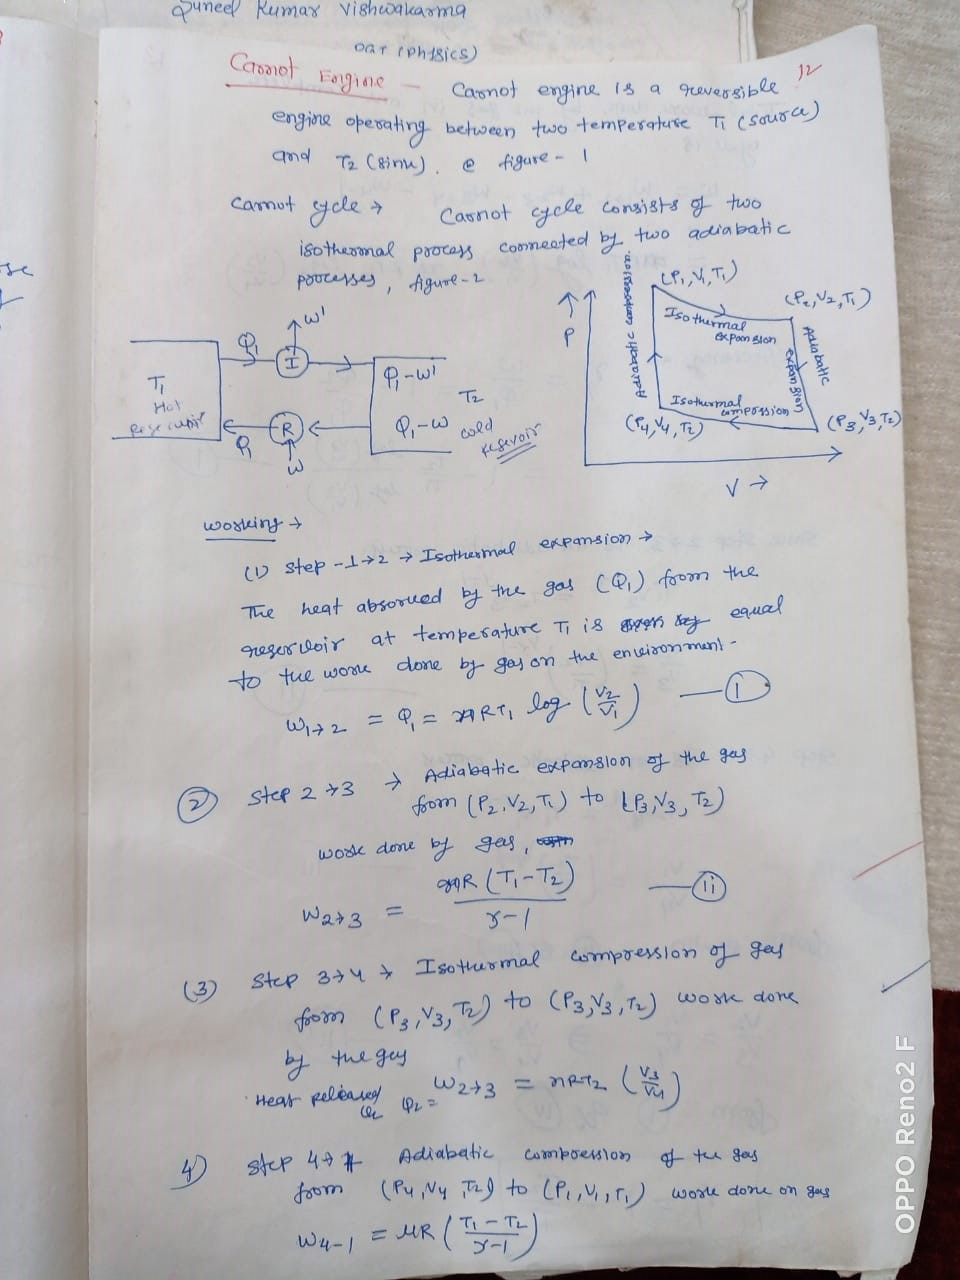 Suneel Kumar Vishwakarma
DGT (Physics)
12
Carnot Engine — Carnot engine is a reversible
engine operating between two temperature T1 (source)
and T2 (sink). @ figure - 1
Carnot cycle → Carnot cycle consists of two
isothermal process connected by two adiabatic
processes, figure-2
T1
Hot
Reservoir
Q1
I
W'
Q1-W'
Q1-W
T2
cold
reservoir
R
Q1
W
P
(P1, V1, T1)
(P2, V2, T1)
Isothermal
expansion
Adiabatic
expansion
Adiabatic compression
Isothermal
compression
(P4, V4, T2)
(P3, V3, T2)
V →
working →
(1) Step -1→2 → Isothermal expansion →
The heat absorved by the gas (Q1) from the
reservoir at temperature T1 is equal
to the work done by gas on the environment-
W1→2 = Q1 = nRT1 log (V2/V1) — I
(2) Step 2→3 → Adiabatic expansion of the gas
from (P2, V2, T1) to (P3, V3, T2)
work done by gas,
W2→3 = nR (T1-T2) / γ-1 — ii
(3) Step 3→4 → Isothermal compression of gas
from (P3, V3, T2) to (P3, V3, T2) work done
by the gas
Heat Released Q2 Q2 = W2→3 = nRT2 (V3/V4)
4) Step 4→1 Adiabatic compression of the gas
from (P4, V4, T2) to (P1, V1, T1) work done on gas
W4-1 = μR (T1-T2 / γ-1)
OPPO Reno2 F